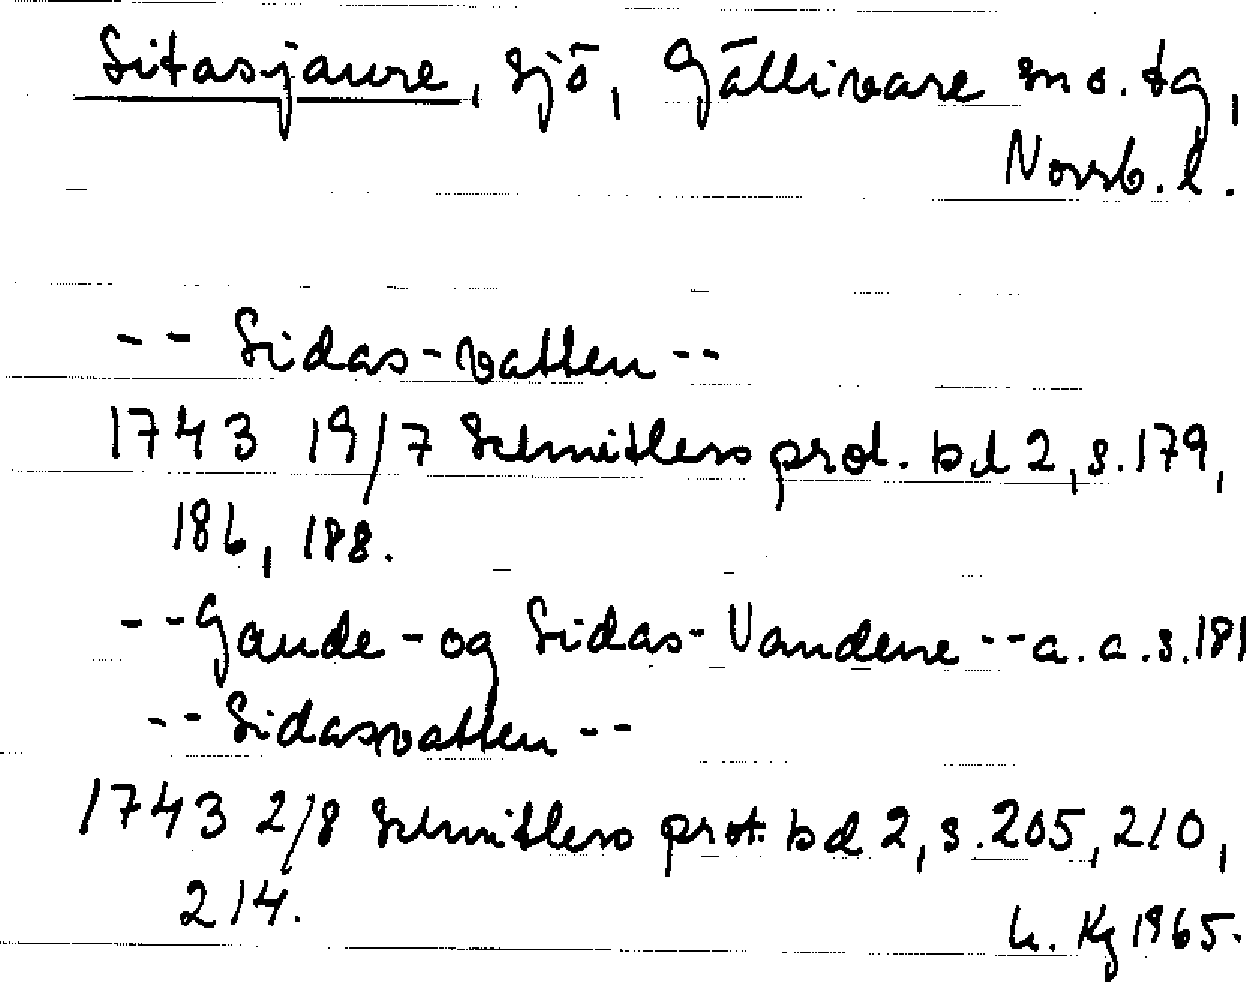 Sitasjaure, sjö, Gällivare sn o. tg,
Norrb. l.
-- Sidas-vatten --
1743 19/7 Schnitlers prot. bd 2, s. 179,
186, 188.
-- Gaude- og Sidas-Vandene -- a. a. s. 181
-- Sidasvatten --
1743 2/8 Schnitlers prot. bd 2, s. 205, 210,
214.
Kg 1965.